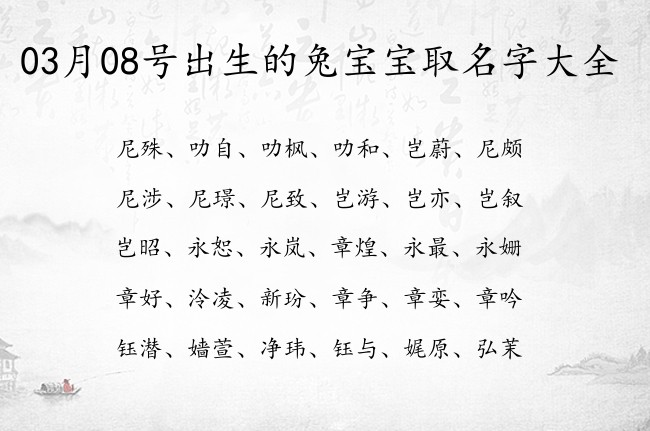 03月08号出生的兔宝宝取名字大全
尼殊、叻自、叻枫、叻和、岂蔚、尼颇
尼涉、尼璟、尼致、岂游、岂亦、岂叙
岂昭、永恕、永岚、章煌、永最、永姗
章好、泠凌、新玢、章争、章娈、章吟
钰潜、嫱萱、净玮、钰与、娓原、弘茉